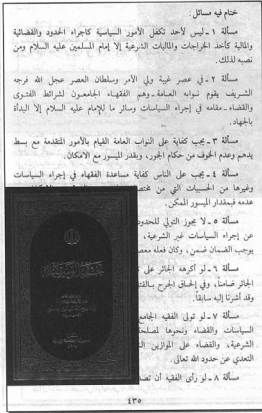 ختام فيه مسائل:
مسألة ١ - ليس لأحد تكفل الأمور السياسية كإجراء الحدود والقضائية
والمالية كأخذ الخراجات والماليات الشرعية إلا إمام المسلمين عليه السلام ومن
نصبه لذلك.
مسألة ٢ - في عصر غيبة ولي الأمر وسلطان العصر عجل الله فرجه
الشريف يقوم نوابه العامة - وهم الفقهاء الجامعون لشرائط الفتوى
والقضاء - مقامه في إجراء السياسات وسائر ما للإمام عليه السلام إلا البدأة
بالجهاد.
مسألة ٣ - يجب كفاية على النواب العامة القيام بالأمور المتقدمة مع بسط
يدهم وعدم الخوف من حكام الجور، وبقدر الميسور مع الإمكان.
مسألة ٤ - يجب على الناس كفاية مساعدة الفقهاء في إجراء السياسات
وغيرها من الحسبيات التي من
عدمه فبمقدار الميسور الممكن.
مسألة ٥ - لا يجوز التولي للحدود
عن إجراء السياسات غير الشرعية،
يوجب الضمان ضمن، وكان فعله
مسألة ٦ - لو أكرهه الجائر على
الجائر ضامناً، وفي إلحاق الجرح
وقد أشرنا إليه سابقاً.
مسألة ٧ - لو تولى الفقيه الجامع
السياسات والقضاء ونحوها لمصلحة
الشرعية، والقضاء على الموازين
التعدي عن حدود الله تعالى.
مسألة ٨ - لو رأى الفقيه أن
٤٣٥